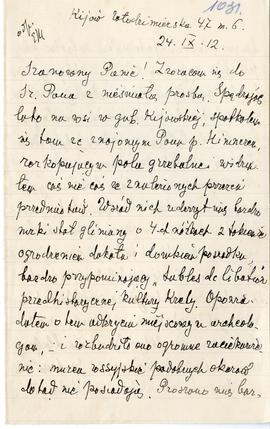 1031.
Kijów Włodzimierska 47 m. 6.
24. IX. 12.
Szanowny Panie! Zwracam się do
Sz. Pana z nieśmiałą prośbą. Spędzając
lato na wsi w gub. Kijowskiej, spotkałem
się tam ze znajomym Panu p. Himnerem,
rozkopującym pola grzebalne i widzia-
łem coś nie coś ze znalezionych przezeń
przedmiotów. Wśród nich uderzył mię bardzo
niski stół gliniany o 4-ch nóżkach z
ogrodzeniem dokoła i pośrodku,
bardzo przypominający „tables de libation"
przedhistorycznej kultury Krety. Opowia-
dałem o tem odkryciu miejscowym archeolo-
gom, i rozbudziło ono ogromne zaciekawie-
nie: muzea rossyjskie podobnych okazów
dotąd nie posiadają. Proszono mię bar-